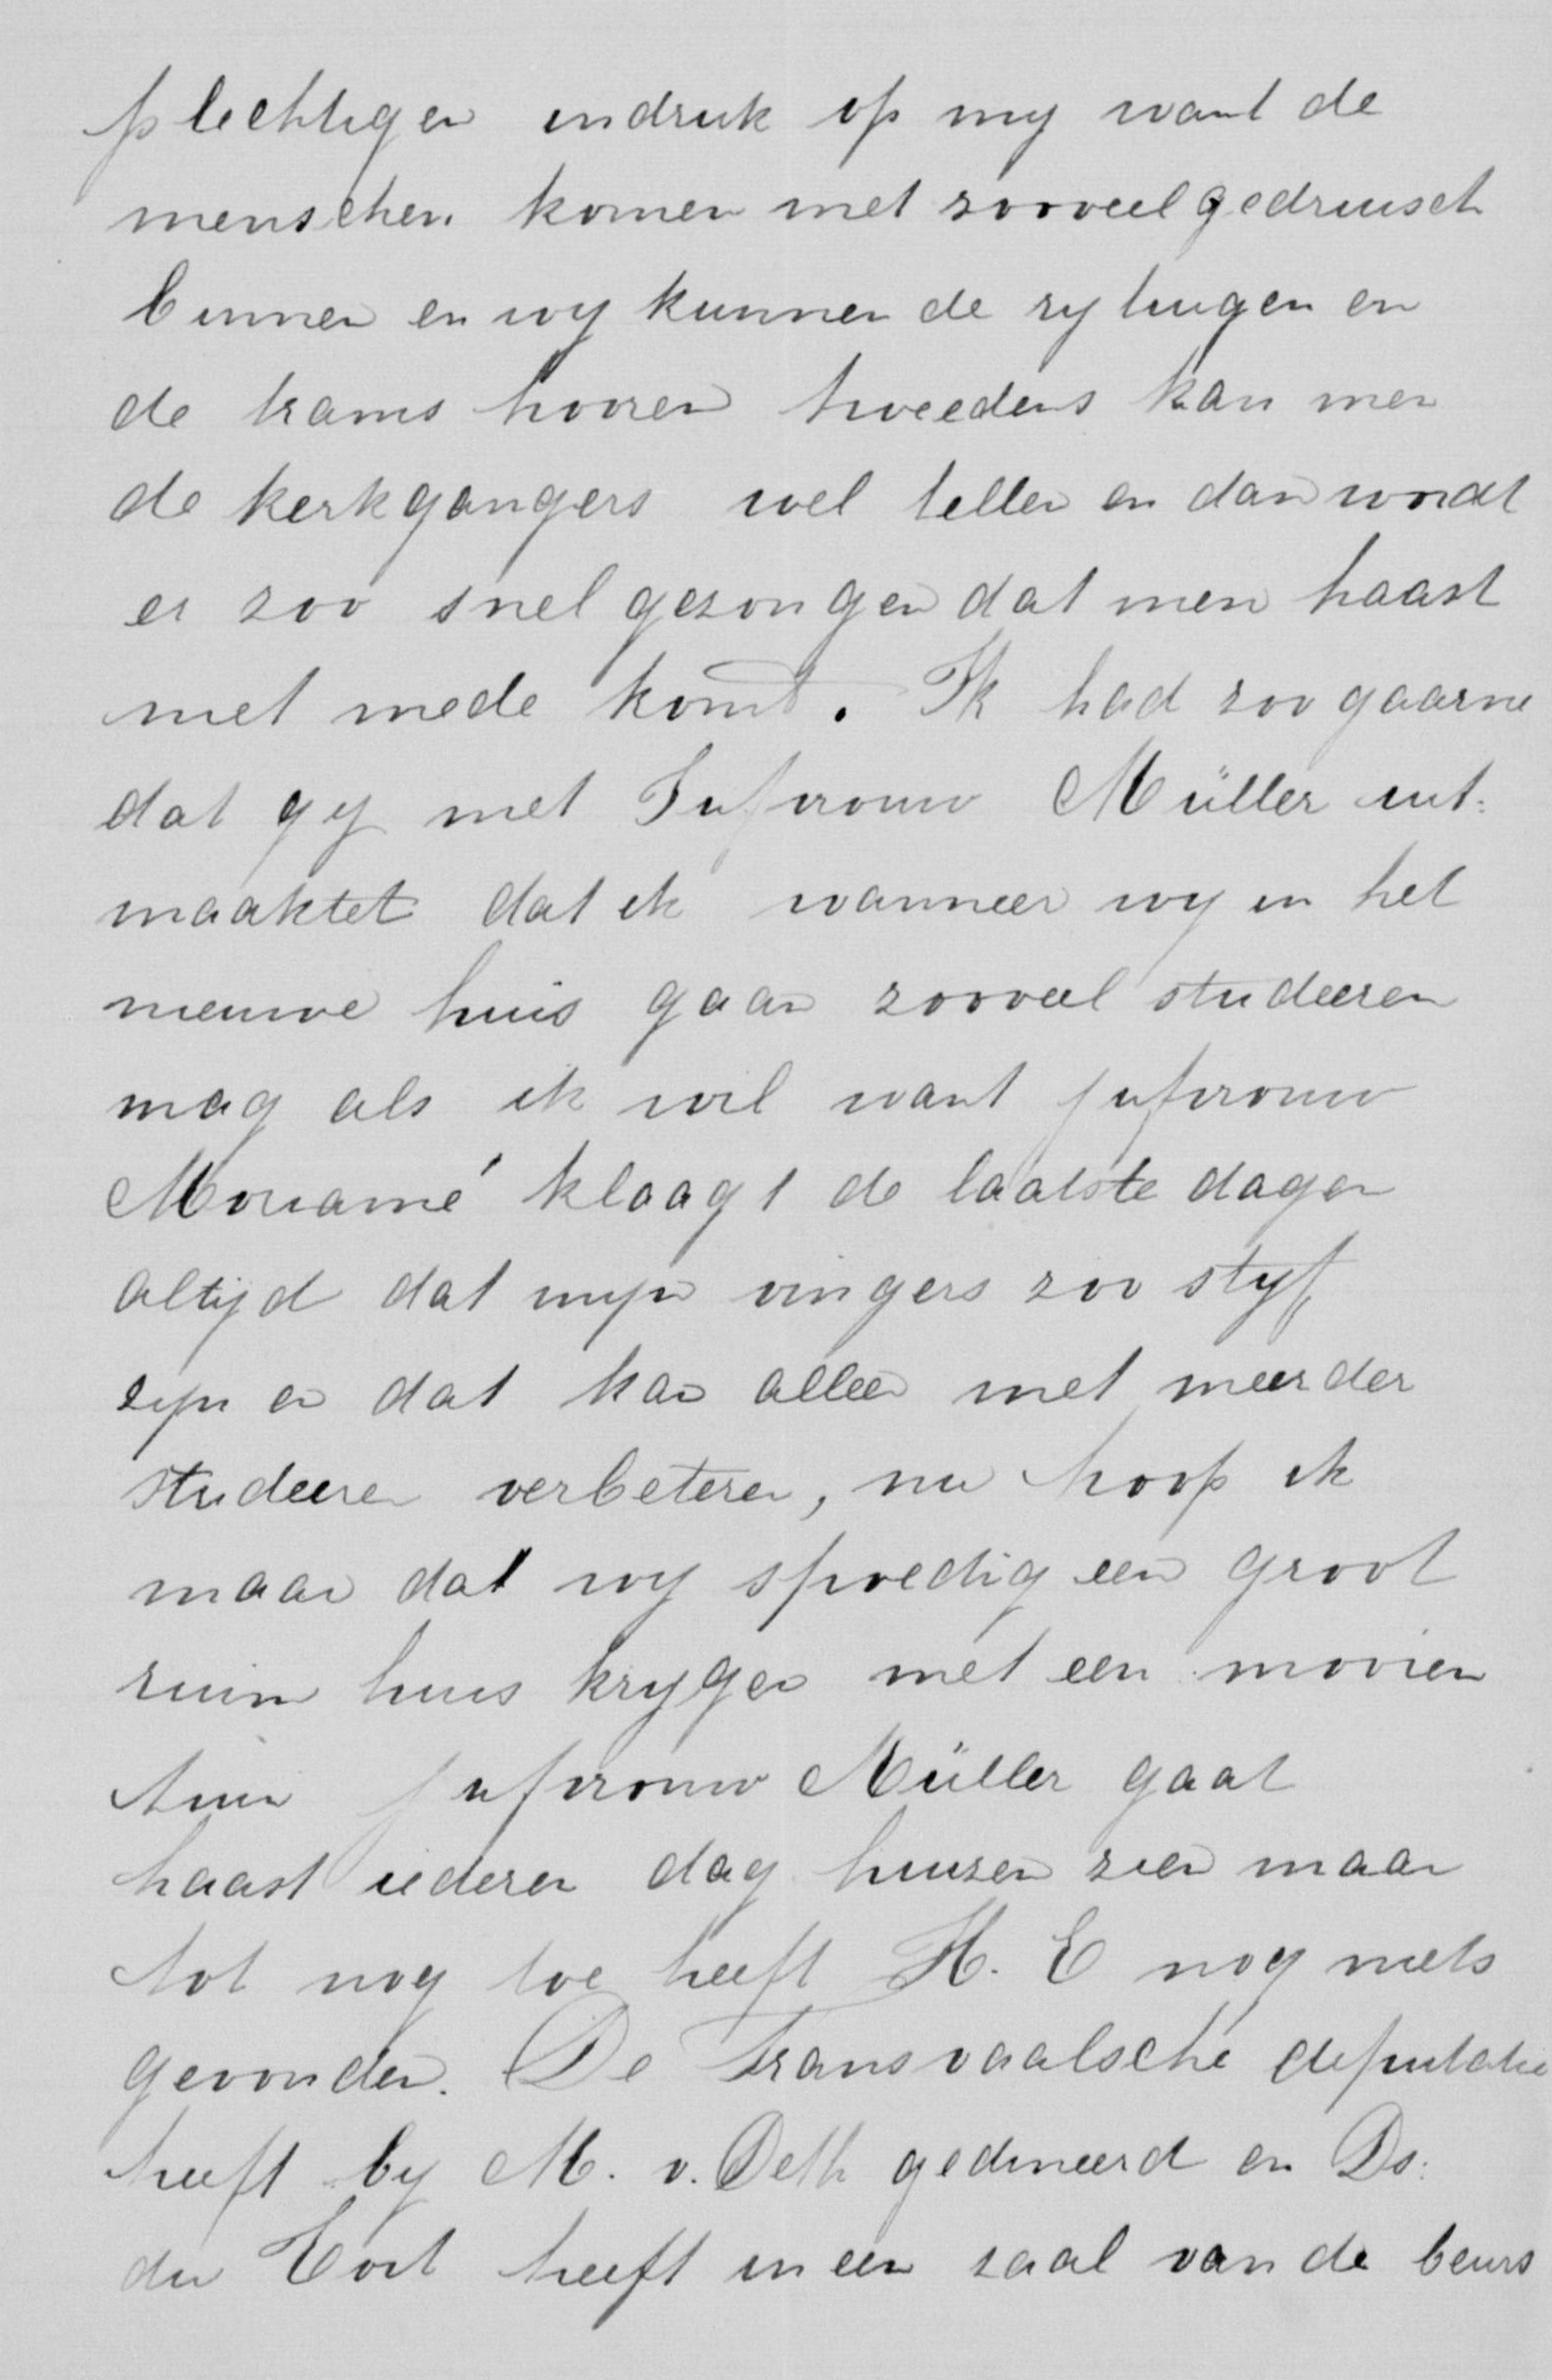 plechtigen indruk op my want de
menschen komen met zooveel gedruisch
binnen en wy kunnen de rytuigen en
de trams hooren tweedens kan men
de kerkgangers wel tellen en dan wordt
er zoo snel gezongen dat men haast
niet mede komt. Ik had zoo gaarne
dat gy met Jufvrouw Müller uit:
maaktet dat ik wanneer wy in het
nieuwe huis gaan zooveel studeeren
mag als ik wil want jufvrouw
Moriamé klaagt de laatste dagen
altijd dat myn vingers zoo styf
zyn en dat kan alleen met meerder
studeeren verbeteren, nu hoop ik
maar dat wy spoedig een groot
ruim huis krygen met een mooien
tuin jufvrouw Müller gaat
haast iederen dag huizen zien maar
tot nog toe heeft H. E nog niets
gevonden. De Transvaalsche deputatie
heeft by M. v. Deth gedineerd en Ds:
du Toit heeft in een zaal van de beurs